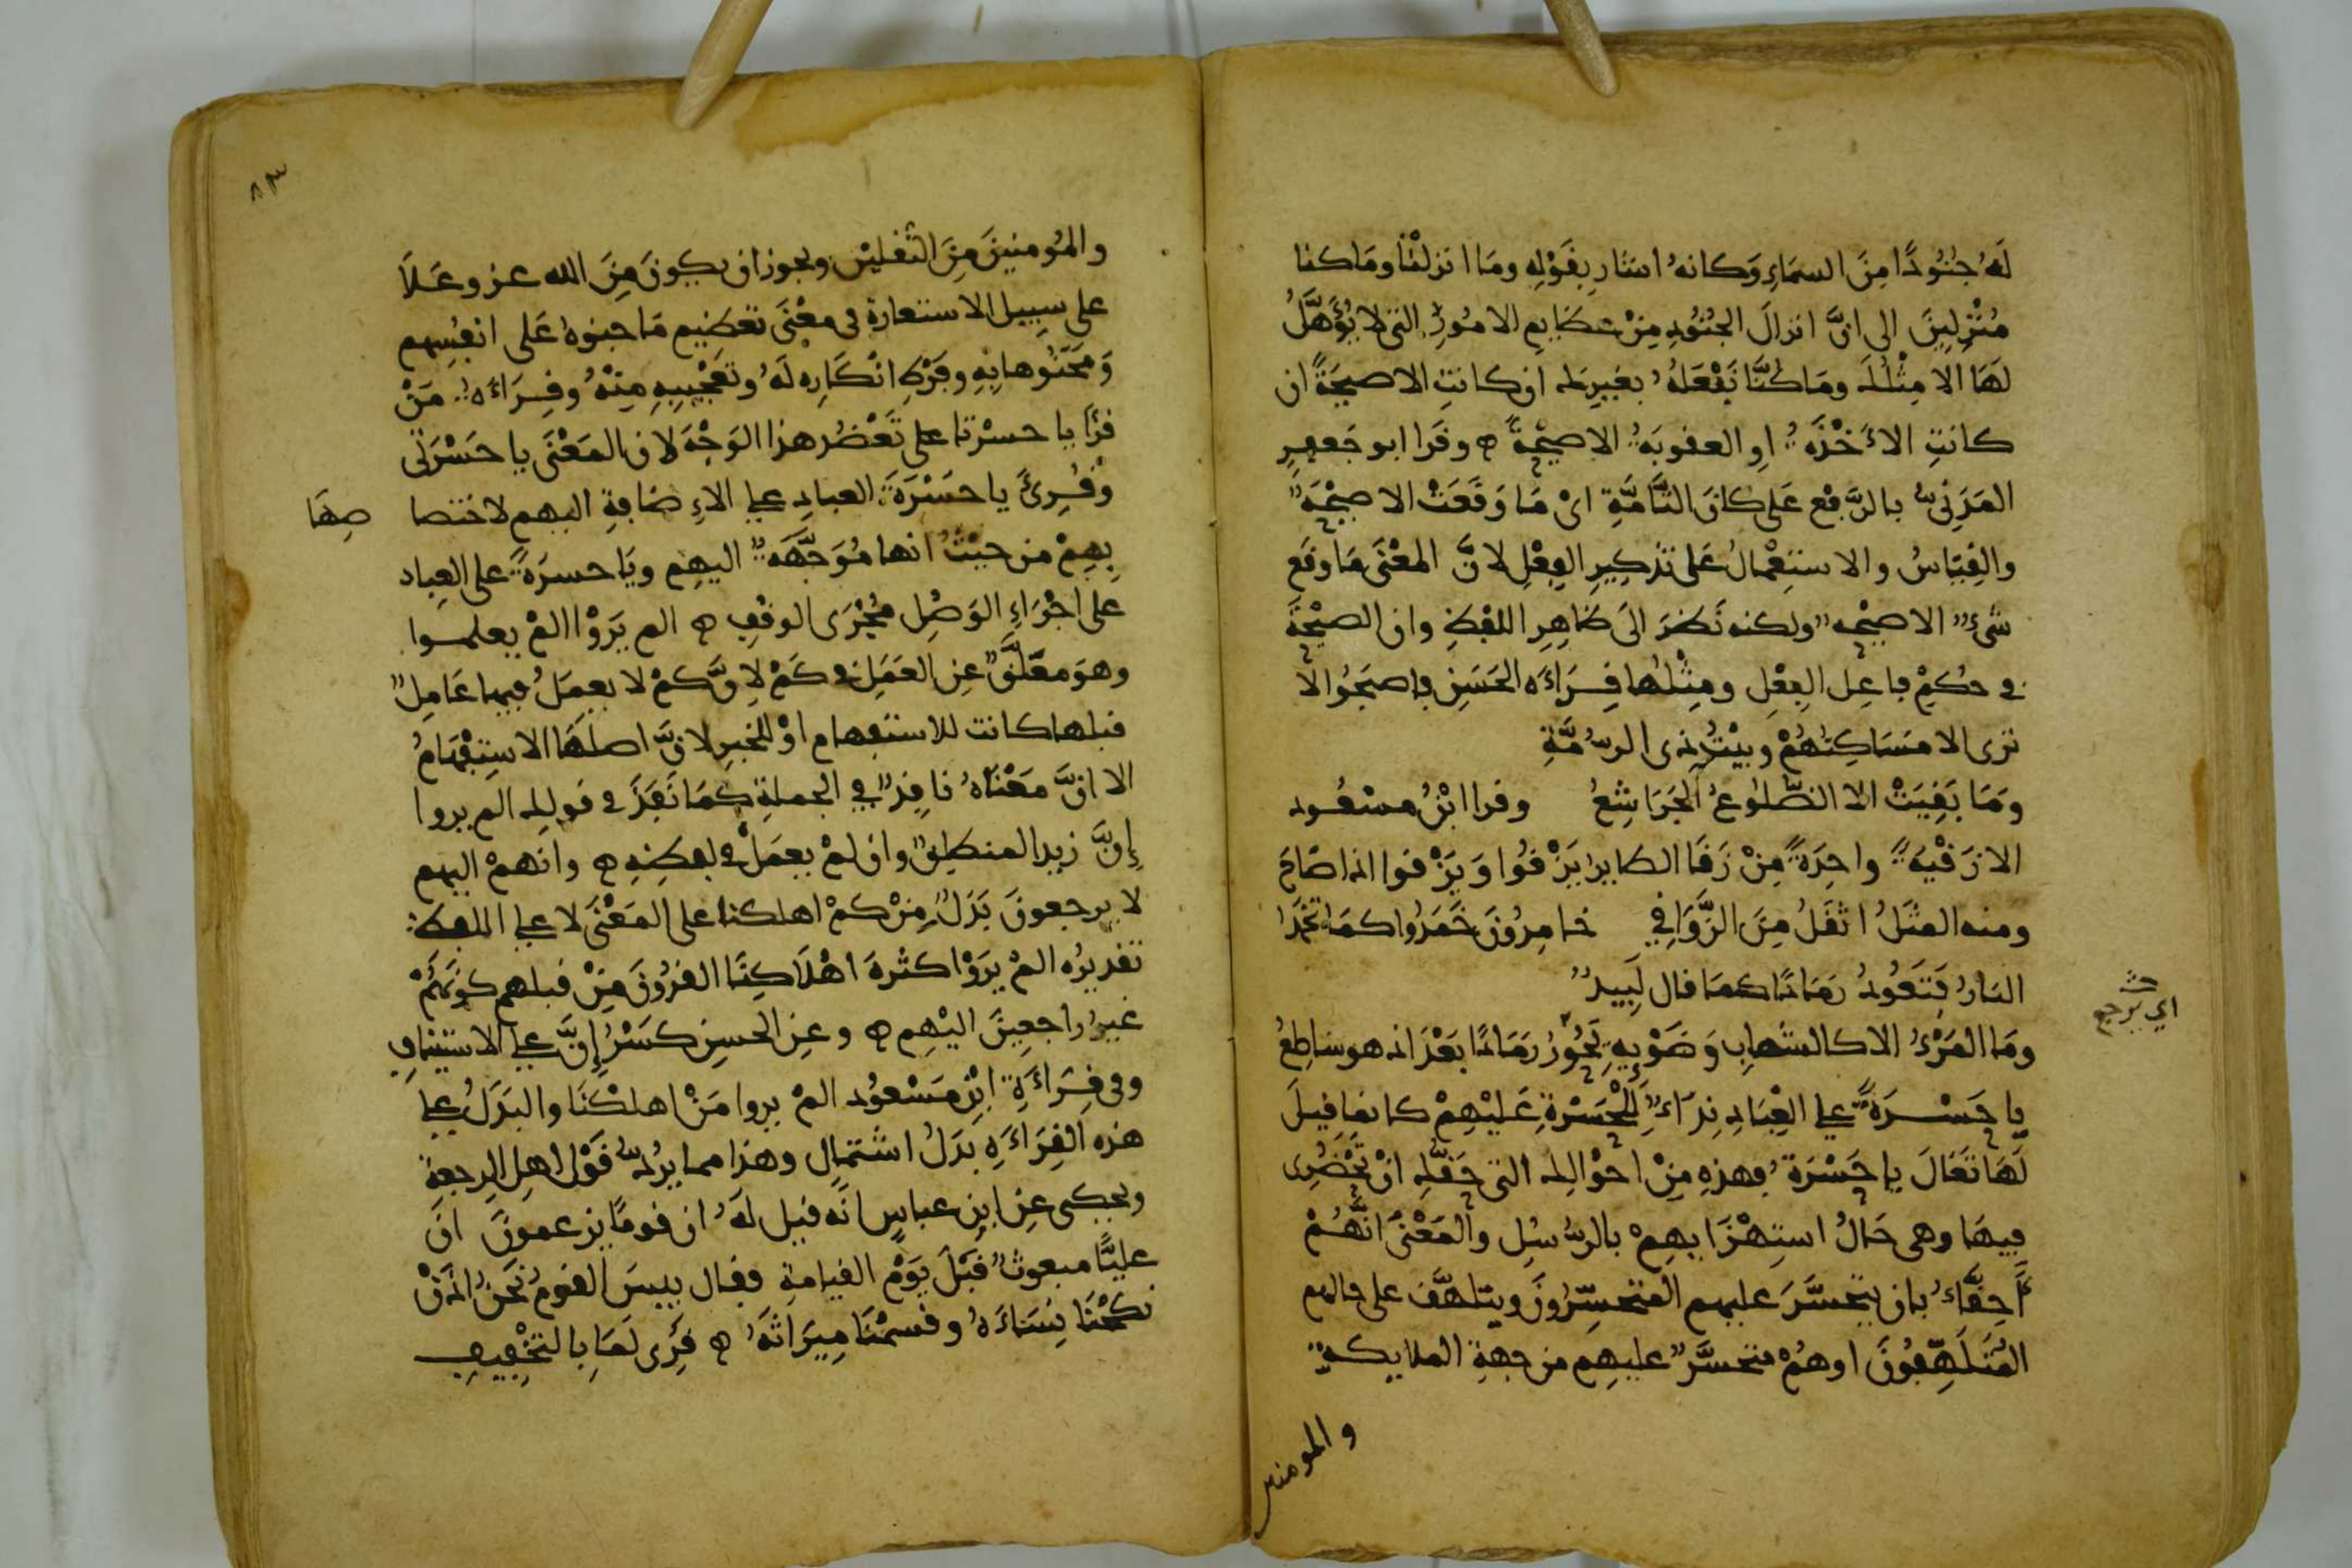 لَهُ جُنُودًا مِنَ السمَاءِ وَكانهُ اشار بِقَوْلِهِ ومَا انزلْنَا ومَا كنا
مُنْزِلِينَ الى انَّ انزالَ الجُنُودِ مِنْ عظايمِ الامُورِ التى لا يُؤَهَّلُ
لهَا الا مِثْلُكَ ومَا كُنَّا نَفْعَلهُ بغيرِك ان كانتِ الا صيحَةً ان
كانتِ الاَخْذَةُ اوِ العقوبَةُ الا صيْحةً ه وقَرا ابو جَعفرٍ
المَدَنِىُّ بالرَّفْع عَلى كانَ التَّامَّةِ اىْ مَا وَقَعَتْ الا صيْحَةٌ
والقِيَاسُ والاستِعْمالُ عَلى تَذكِيرِ الفِعْلِ لانَّ المعْنَى مَا وقَع
شىءٌ الا صيْحةٌ ولكنه نَظَرَ الَى ظاهِرِ اللفظِ وان الصيْحَةَ
فى حُكمِ فاعِلِ الفِعْلِ ومِثْلهَا قِرَاءَة الحَسَنِ فاصبَحُوا لا
ترى الا مَسَاكِنهُمْ وبيْتُ ذى الرُّمَّةِ
ومَا بَقِيَتْ الا الضُّلوعُ الجَرَاشِعُ وقرا ابْنُ مسْعُود
الا زَقْيَةً واحِدَةً مِنْ زَقَا الطاير يَزْقُوا وَيَزْقى اذا صَاحَ
ومنه المثَلُ اثقَلُ مِنَ الزَّوَاقِي خامِدُونَ خَمَدُوا كمَا تخْمَدُ
النارُ فَتَعُودُ رمَادًا كمَا قال لَبِيدٌ
ومَا المَرْءُ الا كالشهابِ وَضَوْيِهِ يَحُورُ رَمَادًا بَعْدَ اذ هو سَاطِعُ
حث
اي يرجع
يا حَسْرَةً على العِبَادِ نِدَاءٌ لِلْحَسْرَةِ عَلَيْهِمْ كانما قيلَ
لهَا تَعَالَ يا حَسْرَةُ فهذهِ مِنْ احْوَالِك التى حَقُّكِ انْ تَحْضُرِى
فِيهَا وهى حَالُ استِهْزَايهِمْ بالرُّسُلِ والمَعْنَى انَّهُمْ
اَحِقَّاءُ بان يتَحسَّرَ عليهم المتحسِّرُونَ ويتلهَّف على حالهم
المُتَلَهِّفُونَ او هُمْ متحسَّرٌ عليهِم من جهةِ الملايكةِ
والمومنين
٨٣
والمُومنينَ مِنَ الثقليْنِ ويجوز ان يكونَ مِنَ الله عز وعَلاَ
على سبِيلِ الاستعارةِ فى معْنَى تعْظِيمِ مَا جنوهُ عَلى انفُسِهم
وَمحَنُوها بِهِ وفَرْطِ انْكَارِه لَهُ وتعْجِيبِهِ مِنْهُ وقِرَاءَةُ مَنْ
قرَا يا حسْرتا على تَعْضُد هذا الوَجْهَ لان المَعْنَى يا حَسْرَتى
وقُرِئَ يا حسْرَةَ العبادِ على الاِضافةِ اليهم لاختصا صِهَا
بِهِمْ من حيْثُ انها مُوَجَّهَةٌ اليهِم ويَا حسرَةْ على العِباد
على اجْرَاءِ الوَصْلِ مُجْرَى الوقْفِ ه الم يَرَوْا المْ يعلموا
وهوَ معَلَّقٌ عنِ العَمَلِ فى كَمْ لاِنَّ كمْ لا يعمَلُ فيها عَامِلٌ
قبلها كانت للاستفهام اوْ للخبرِ لانَّ اصلهَا الاستِفْهَامُ
الا انَّ مَعْنَاهُ نافِذٌ فى الجملةِ كمَا نَفَذَ فى قولِك الم يروا
إِنَّ زيدا لمنطلِقٌ وان لمْ يعمَلْ فى لفظِهِ ه وانهمْ اليهم
لا يرجعونَ بَدَلٌ مِنْ كمْ اهلكنا على المَعْنَى لا على اللفظ
تقديرُه المْ يرَوْا كثرةَ اهْلاَكِنَا القرُونَ مِنْ قبلهم كونَهُمْ
غيرَ راجعِينَ اليْهِم ه وعنِ الحسنِ كَسْرُ إِنَّ على الاستينافِ
وفى قِرَاءَةِ ابْنِ مَسْعُود المْ يروا مَنْ اهلكْنَا والبَدَلُ على
هذه القِرَاءَةِ بدَلُ اشتمالٍ وهذا مما يردُّ قَوْلَ اهلِ الرجعةِ
ويحكى عنِ ابنِ عباسٍ انَّه قيل لَهُ ان قومًا يزعمونَ انَّ
عليًّا مبعوثٌ قَبْلَ يَوْمِ القيامةِ فقال بيسَ القومُ نَحْنُ اذَنْ
نكحْنَا نِسَاءَهُ وقسمْنَا مِيرَاثهُ ه قُرِى لَمَا بالتخْفِيفِ